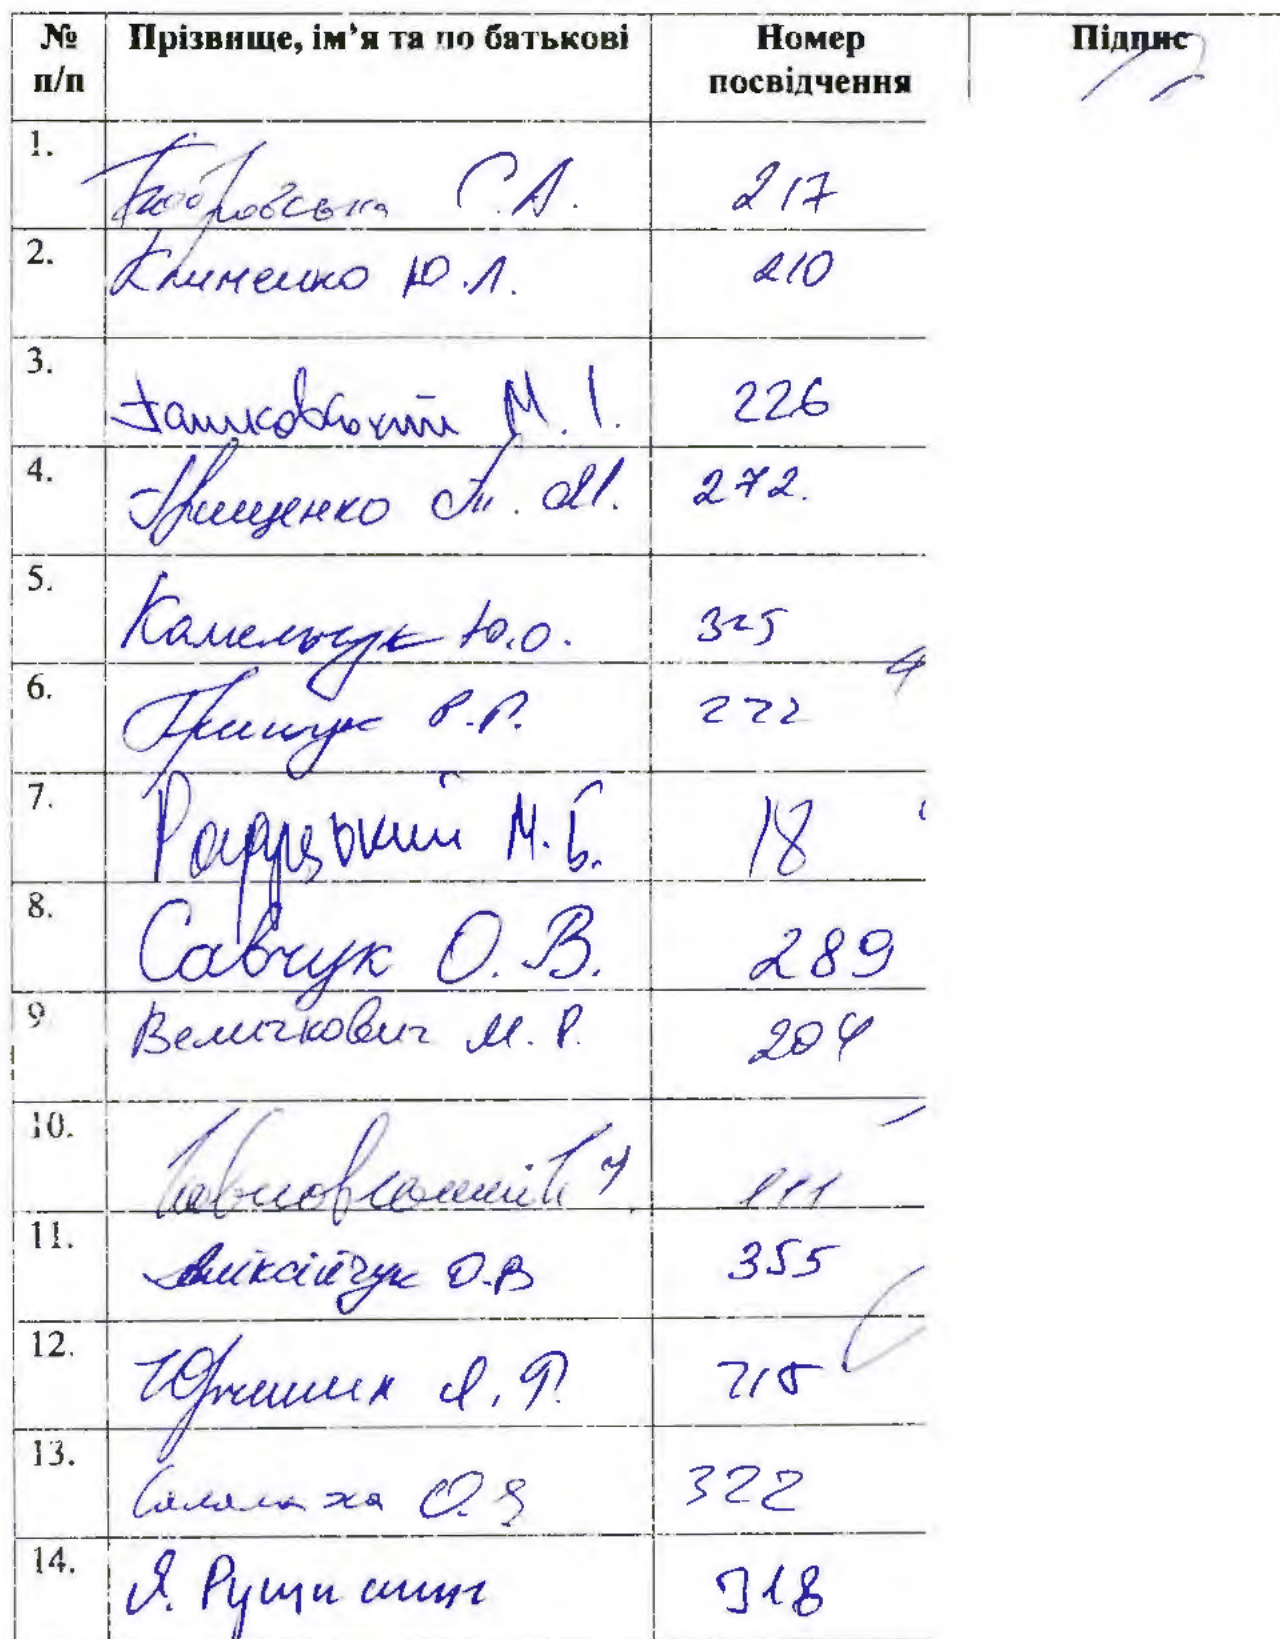 № п/п Прізвище, ім’я та по батькові Номер посвідчення Підпис
1. Бобровська С.А. 217
2. Клименко Ю.Л. 210
3. М.І. 226
4. Грищенко Т. М. 272.
5. Камельчук Ю.О. 325
6. Грищук Р.П. 272
7. Радуцький М.Б. 18
8. Савчук О.В. 289
9 Величкович М.Р. 204
10. 111
11. Аліксійчук О.В 355
12. Юрчишин Я.Р. 315
13. Саламаха О.І 322
14. Я. Рущишин 318